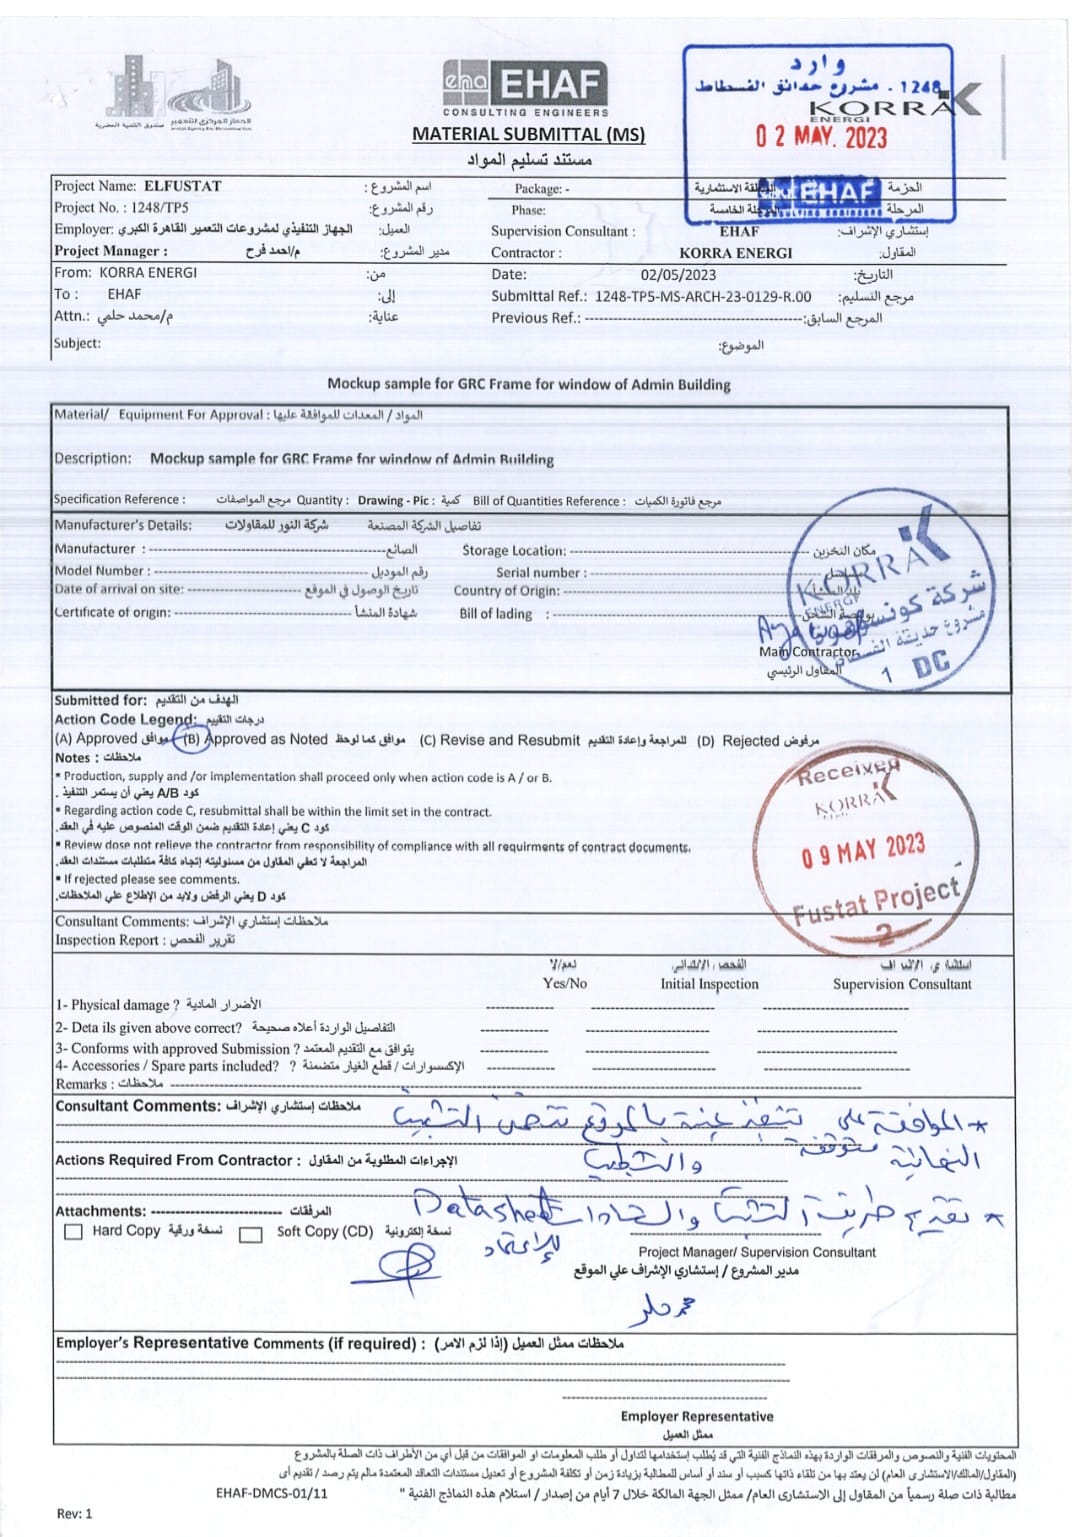 صندوق التنمية الحضرية
الجهاز المركزي للتعمير
eha EHAF
CONSULTING ENGINEERS
MATERIAL SUBMITTAL (MS)
مستند تسليم المواد
وارد
1248 - مشروع حدائق الفسطاط
KORRA
ENERGI
02 MAY. 2023
EHAF
Project Name: ELFUSTAT اسم المشروع : Package: - الحزمة
Project No. : 1248/TP5 رقم المشروع: Phase: المرحلة الخامسة المرحلة
Employer: الجهاز التنفيذي لمشروعات التعمير القاهرة الكبري العميل: Supervision Consultant : EHAF إستشاري الإشراف:
Project Manager : م/احمد فرح مدير المشروع: Contractor : KORRA ENERGI المقاول:
From: KORRA ENERGI من: Date: 02/05/2023 التاريخ:
To : EHAF إلى: Submittal Ref.: 1248-TP5-MS-ARCH-23-0129-R.00 مرجع التسليم:
Attn.: م/محمد حلمي عناية: Previous Ref.: ---------------------------------------- المرجع السابق:
Subject: الموضوع:
Mockup sample for GRC Frame for window of Admin Building
Material/ Equipment For Approval : المواد / المعدات للموافقة عليها
Description: Mockup sample for GRC Frame for window of Admin Building
Specification Reference : مرجع المواصفات Quantity : Drawing - Pic : كمية Bill of Quantities Reference : مرجع فاتورة الكميات
Manufacturer's Details: شركة النور للمقاولات تفاصيل الشركة المصنعة
Manufacturer : ---------------------------------------- الصانع Storage Location: ---------------------------------------- مكان التخزين
Model Number : ---------------------------------------- رقم الموديل Serial number : ----------------------------------------
Date of arrival on site: ------------------------ تاريخ الوصول في الموقع Country of Origin: ----------------------------------------
Certificate of origin: -------------------------------- شهادة المنشأ Bill of lading : ----------------------------------------
KORRA
ENERGI
مشروع حديقة الفسطاط
1 DC
Main Contractor
المقاول الرئيسي
Submitted for: الهدف من التقديم
Action Code Legend: درجات التقييم
(A) Approved موافق (B) Approved as Noted موافق كما لوحظ (C) Revise and Resubmit للمراجعة وإعادة التقديم (D) Rejected مرفوض
Notes : ملاحظات
▪ Production, supply and /or implementation shall proceed only when action code is A / or B.
كود A/B يعني أن يستمر التنفيذ .
▪ Regarding action code C, resubmittal shall be within the limit set in the contract.
كود C يعني إعادة التقديم ضمن الوقت المنصوص عليه في العقد.
▪ Review dose not relieve the contractor from responsibility of compliance with all requirments of contract documents.
المراجعة لا تعفي المقاول من مسئوليته إتجاه كافة متطلبات مستندات العقد.
▪ If rejected please see comments.
كود D يعني الرفض ولابد من الإطلاع علي الملاحظات.
Received
KORRA
09 MAY 2023
Fustat Project
2
Consultant Comments: ملاحظات إستشاري الإشراف
Inspection Report : تقرير الفحص
نعم/لا الفحص الإبتدائي استشاري الإشراف
Yes/No Initial Inspection Supervision Consultant
1- Physical damage ? الأضرار المادية ?
2- Deta ils given above correct? التفاصيل الواردة أعلاه صحيحة
3- Conforms with approved Submission ? يتوافق مع التقديم المعتمد
4- Accessories / Spare parts included? الإكسسوارات / قطع الغيار متضمنة ?
Remarks : ملاحظات
Consultant Comments: ملاحظات إستشاري الإشراف:
* الموافقة على تنفيذ عينة بالموقع تتضمن التثبيت
النهائية متوقفة والتشطيب
Actions Required From Contractor : الإجراءات المطلوبة من المقاول:
* تقديم طريقة التثبيت والشهادات Datasheet
للإعتماد
Attachments: ---------------------------- المرفقات
Hard Copy نسخة ورقية Soft Copy (CD) نسخة إلكترونية
Project Manager/ Supervision Consultant
مدير المشروع / إستشاري الإشراف علي الموقع
محمد حلمي
Employer's Representative Comments (if required) : ملاحظات ممثل العميل (إذا لزم الامر) :
Employer Representative
ممثل العميل
المحتويات الفنية والنصوص والمرفقات الواردة بهذه النماذج الفنية التي قد يُطلب إستخدامها لتداول أو طلب المعلومات او الموافقات من قبل أي من الأطراف ذات الصلة بالمشروع
(المقاول/المالك/الاستشارى العام) لن يعتد بها من تلقاء ذاتها كسبب أو سند أو أساس للمطالبة بزيادة زمن أو تكلفة المشروع أو تعديل مستندات التعاقد المعتمدة مالم يتم رصد / تقديم أى
مطالبة ذات صلة رسمياً من المقاول إلى الاستشارى العام/ ممثل الجهة المالكة خلال 7 أيام من إصدار / استلام هذه النماذج الفنية "
EHAF-DMCS-01/11
Rev: 1